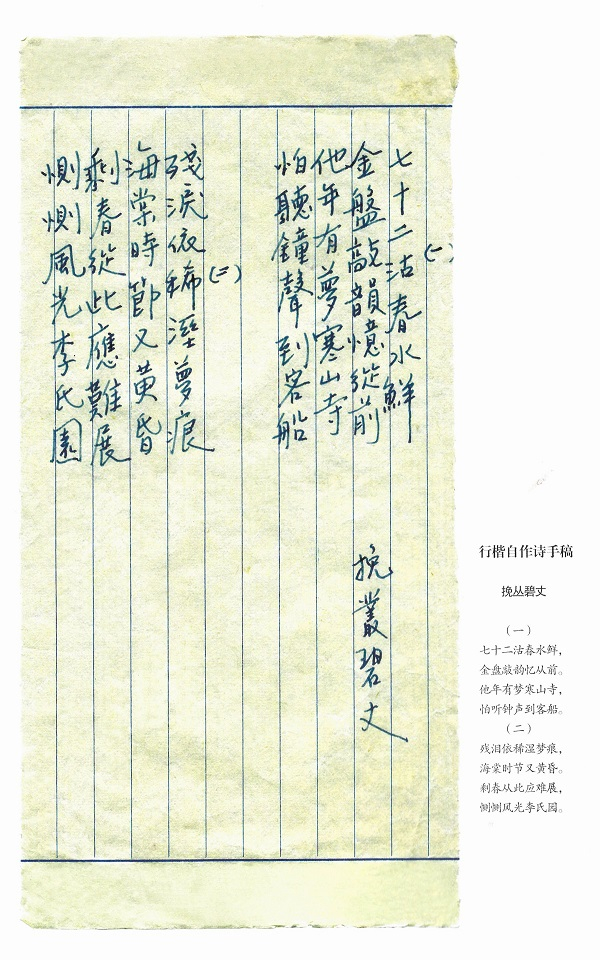 挽叢碧丈
(一)
七十二沽春水鮮
金盤敲韻憶從前
他年有夢寒山寺
怕聽鐘聲到客船
(二)
殘淚依稀溼夢痕
海棠時節又黃昏
剩春從此應難展
惻惻風光李氏園
行楷自作诗手稿
挽丛碧丈
（一）
七十二沽春水鲜，
金盘敲韵忆从前。
他年有梦寒山寺，
怕听钟声到客船。
（二）
残泪依稀湿梦痕，
海棠时节又黄昏。
剩春从此应难展，
恻恻风光李氏园。